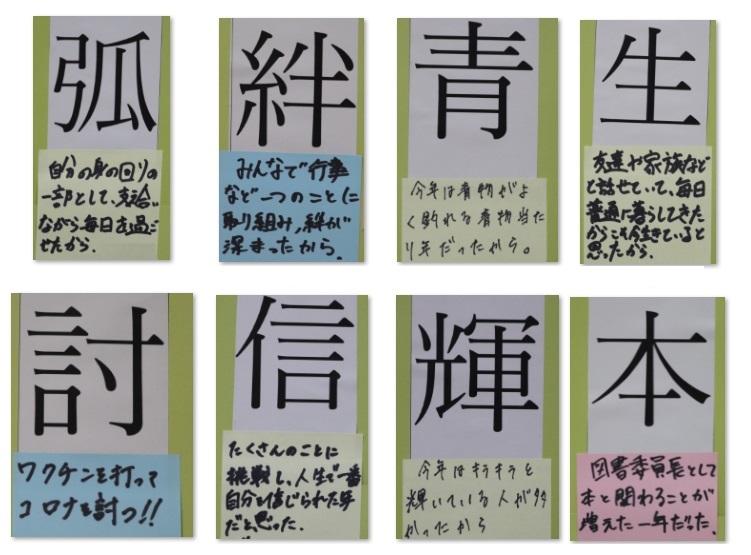 弧
自分の身の回りの
一部として、支合い
ながら毎日を過ご
せたから.
絆
みんなで行事
など一つのことに
取り組み,絆が
深まったから.
青
今年は青物がよ
く釣れる青物当た
り年だったから。
生
友達や家族など
と話せていて、毎日
普通に暮らしてきた
からこそ今生きていると
思ったから.
討
ワクチンを打って
コロナを討つ!!
信
たくさんのことに
挑戦し、人生で一番
自分を信じられた年
だと思った.
輝
今年はキラキラと
輝いている人が多
かったから
本
図書委員長として
本と関わることが
増えた一年だった.